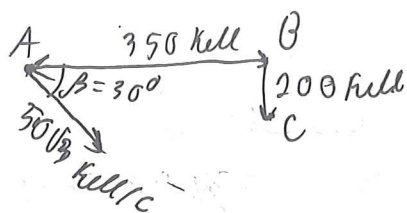 A
350 км
B
β=30°
200 км
C
50√3 км/с